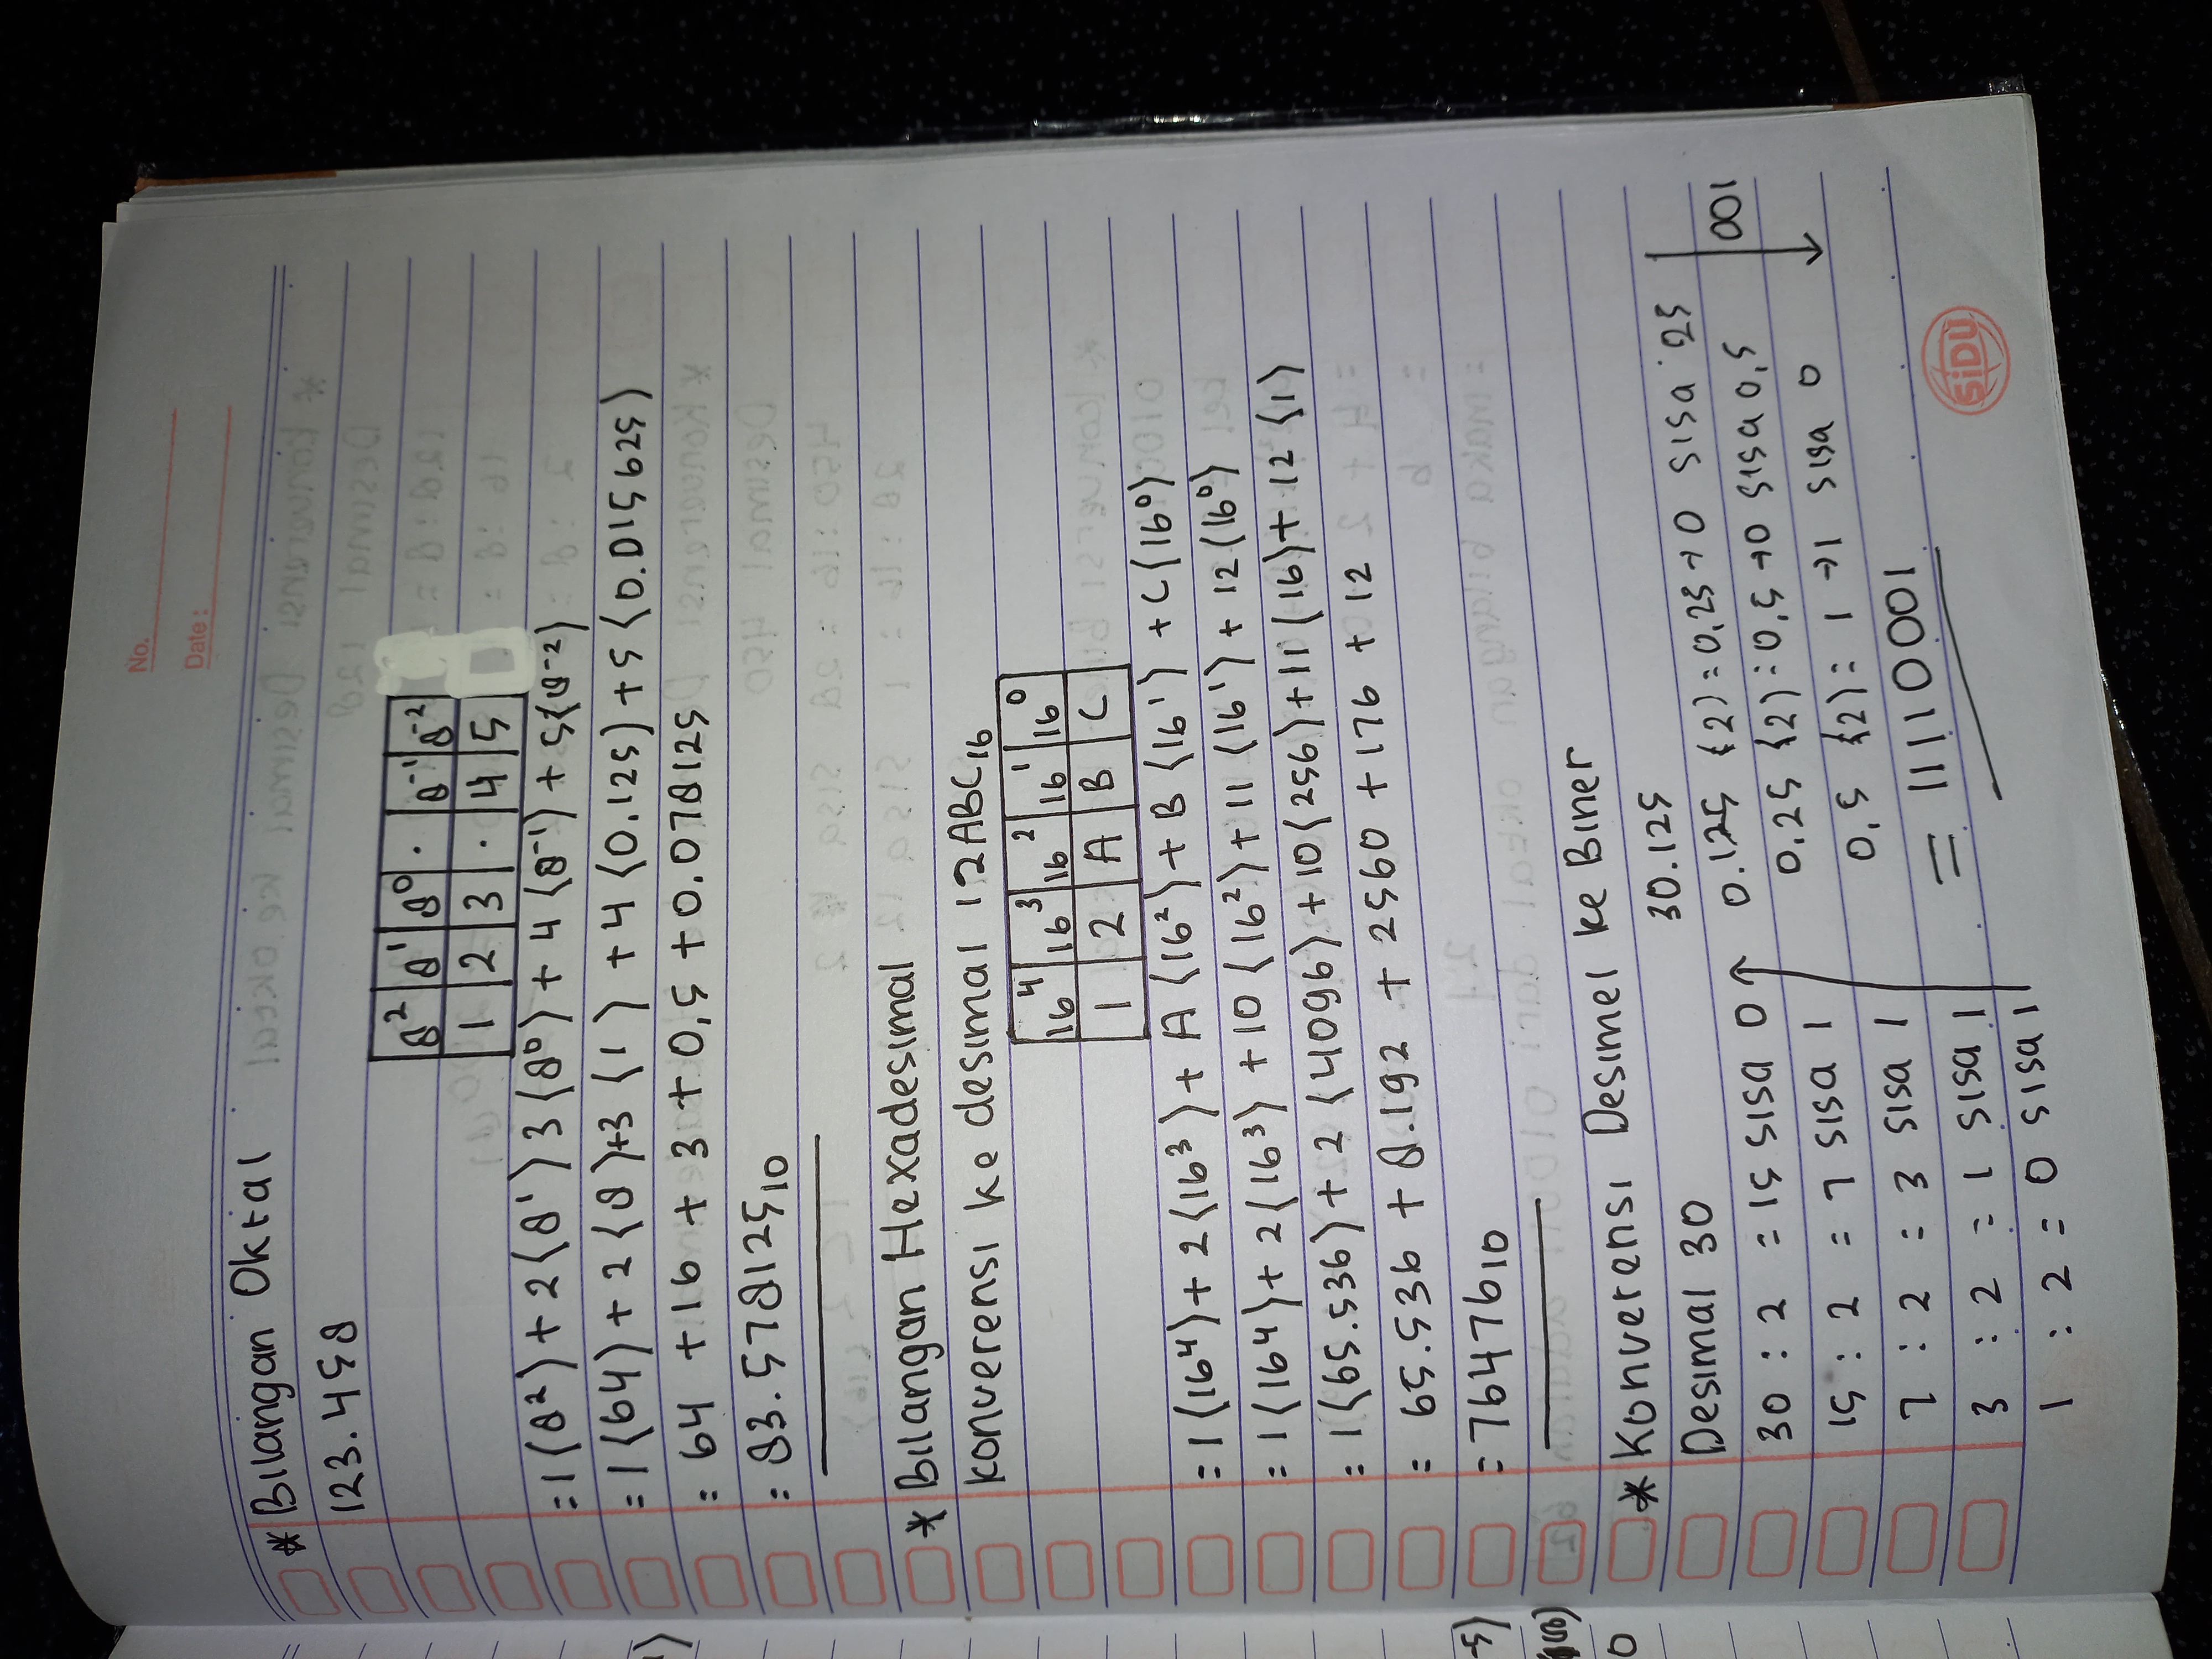 No.
Date :
* Bilangan Oktal
123.458
8² 8¹ 8⁰ . 8⁻¹ 8⁻²
1 2 3 . 4 5
= 1 (8²) + 2 (8¹) 3 (8⁰) + 4 (8⁻¹) + 5 (8⁻²)
= 1 (64) + 2 (8) +3 (1) + 4 (0.125) + 5 (0.015625)
= 64 + 16 + 3 + 0,5 + 0.078125
= 83.578125₁₀
* Bilangan Hexadesimal
konverensi ke desimal 12ABC₁₆
16⁴ 16³ 16² 16¹ 16⁰
1 2 A B C
= 1 (16⁴) + 2 (16³) + A (16²) + B (16¹) + C (16⁰)
= 1 (16⁴) + 2 (16³) + 10 (16²) + 11 (16¹) + 12 (16⁰)
= 1 (65.536) + 2 (4096) + 10 (256) + 11 (16) + 12 (1)
= 65.536 + 8.192 + 2560 + 176 + 12
= 76476₁₀
* Konverensi Desimel ke Biner
Desimal 30
30 : 2 = 15 sisa 0
15 : 2 = 7 sisa 1
7 : 2 = 3 sisa 1
3 : 2 = 1 sisa 1
1 : 2 = 0 sisa 1
30.125
0.125 (2) = 0,25 → 0 sisa 25
0,25 (2) = 0,5 → 0 sisa 0,5
0,5 (2) = 1 → 1 sisa 0
001
= 11110001
SiDU